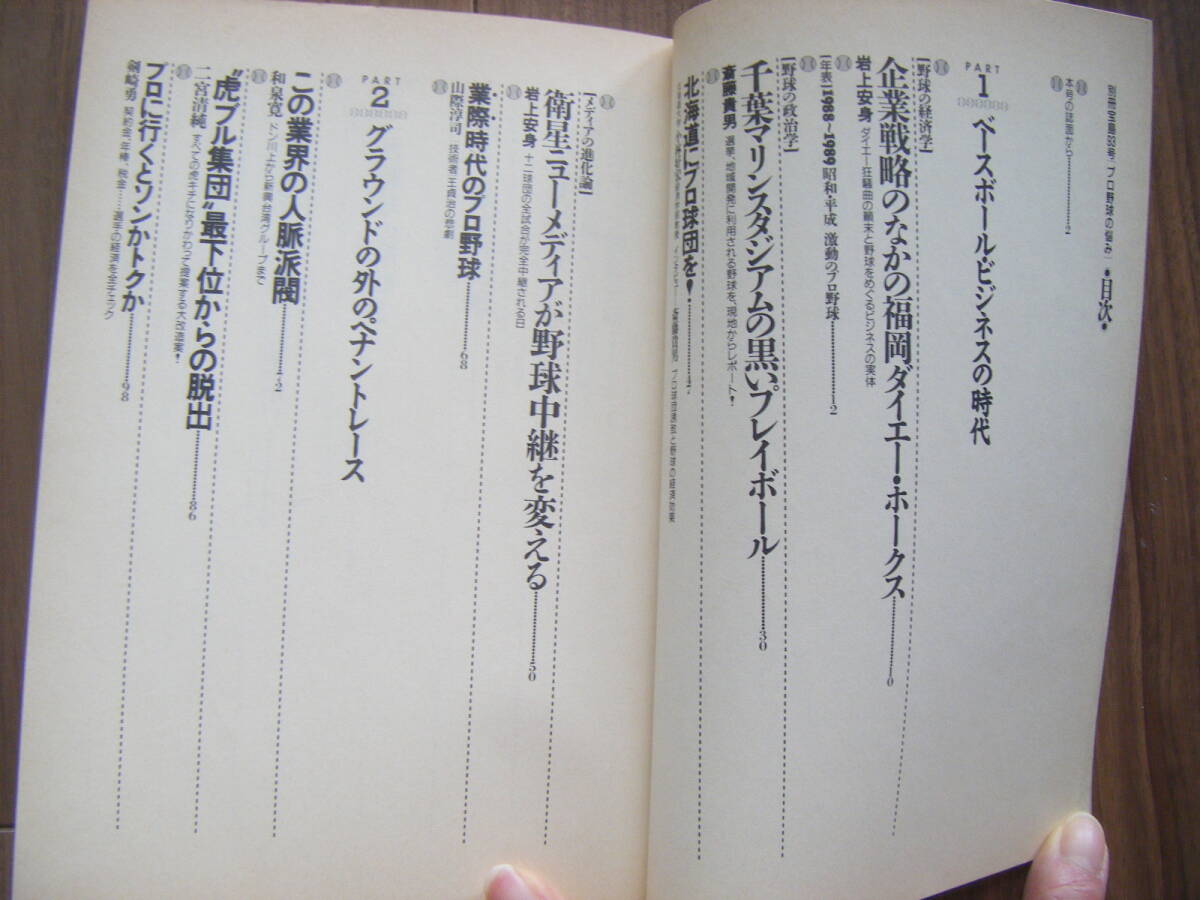 別冊宝島93号「プロ野球の悩み」・目次・
本号の誌面から…………2
PART 1 ベースボール・ビジネスの時代
[野球の経済学]
企業戦略のなかの福岡ダイエー・ホークス…………10
岩上安身 ダイエー狂騒曲の顛末と野球をめぐるビジネスの実体
[年表]1988〜1989 昭和・平成 激動のプロ野球…………12
[野球の政治学]
千葉マリンスタジアムの黒いプレイボール…………30
斎藤貴男 選挙、地域開発に利用される野球を、現地からレポート!
北海道にプロ球団を!
プロ球団誘致と野球の経済効果
[メディアの進化論]
衛星ニューメディアが野球中継を変える…………50
岩上安身 十二球団の全試合が完全中継される日
業際時代のプロ野球…………68
山際淳司 技術者・王貞治の悲劇
PART 2 グラウンドの外のペナントレース
この業界の人脈派閥
和泉寛 ドン川上から新興台湾グループまで
“虎ブル集団”最下位からの脱出…………86
二宮清純 すべての虎キチになりかわって提案する大改造案!
プロに行くとソンかトクか…………98
剣崎勇 契約金、年棒、税金……選手の経済を全チェック